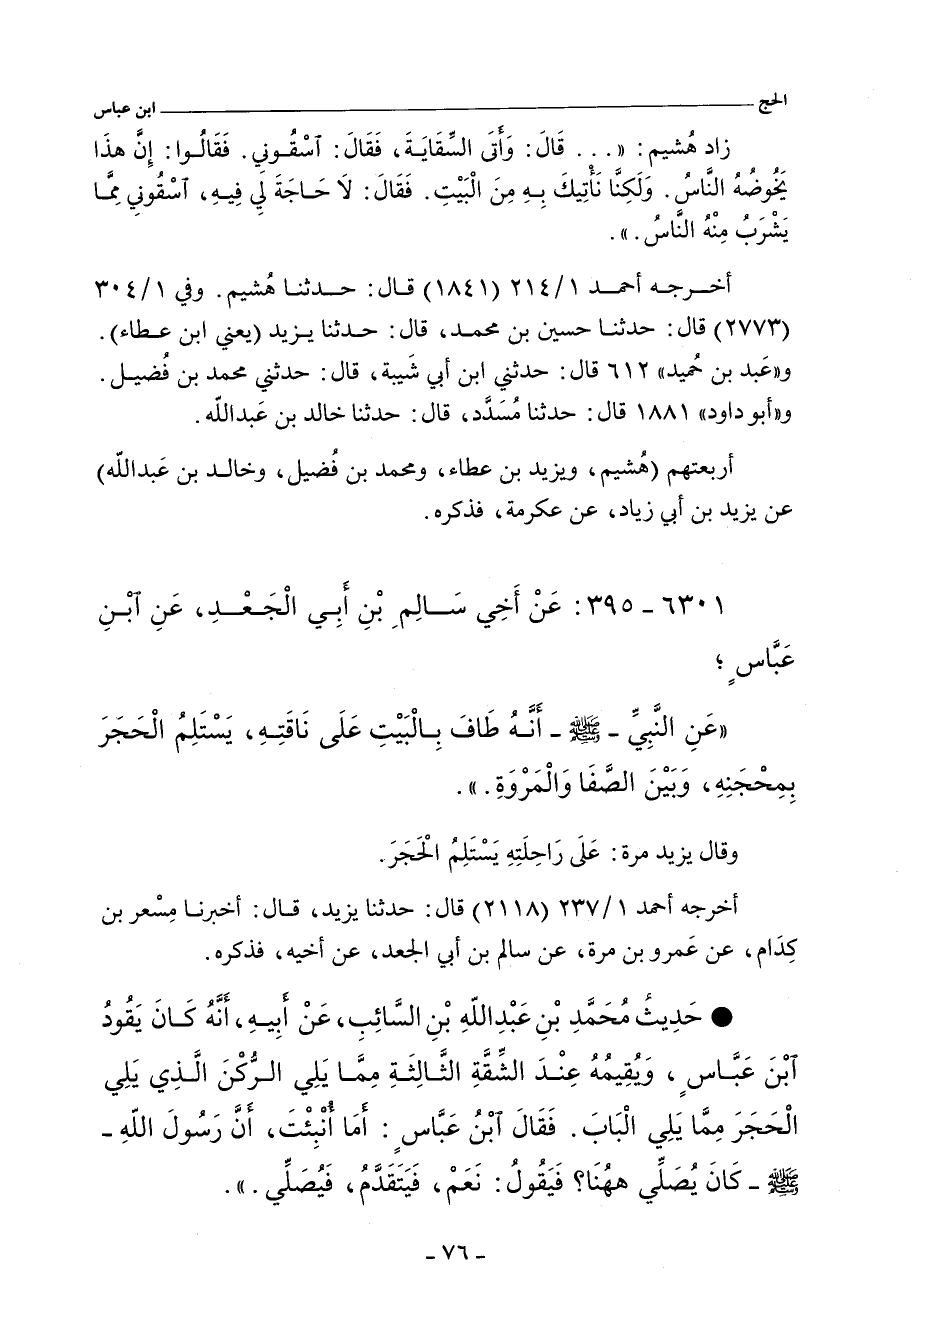 الحج ــــــــــــــــــــــــــــــــــــــــــــــــ ابن عباس
زاد هُشيم: «... قَالَ: وَأَتَى السِّقَايَةَ، فَقَالَ: ٱسْقُونِي. فَقَالُوا: إِنَّ هذَا
يَخُوضُهُ النَّاسُ. وَلَكِنَّا نَأْتِيكَ بِهِ مِنَ الْبَيْتِ. فَقَالَ: لَا حَاجَةَ لِي فِيهِ، ٱسْقُونِي مِمَّا
يَشْرَبُ مِنْهُ النَّاسُ.».
أخرجه أحمد ١/ ٢١٤ (١٨٤١) قال: حدثنا هُشيم. وفي ١/ ٣٠٤
(٢٧٧٣) قال: حدثنا حسين بن محمد، قال: حدثنا يزيد (يعني ابن عطاء).
و«عَبد بن حُميد» ٦١٢ قال: حدثني ابن أبي شَيبة، قال: حدثني محمد بن فُضيل.
و«أبو داود» ١٨٨١ قال: حدثنا مُسَدَّد، قال: حدثنا خالد بن عَبدالله.
أربعتهم (هُشيم، ويزيد بن عطاء، ومحمد بن فُضيل، وخالد بن عَبدالله)
عن يزيد بن أبي زياد، عن عكرمة، فذكره.
٦٣٠١ - ٣٩٥: عَنْ أَخِي سَالِمِ بْنِ أَبِي الْجَعْدِ، عَنِ ٱبْنِ
عَبَّاسٍ؛
«عَنِ النَّبِيِّ - ﷺ - أَنَّهُ طَافَ بِالْبَيْتِ عَلَى نَاقَتِهِ، يَسْتَلِمُ الْحَجَرَ
بِمِحْجَنِهِ، وَبَيْنَ الصَّفَا وَالْمَرْوَةِ.».
وقال يزيد مرة: عَلَى رَاحِلَتِهِ يَسْتَلِمُ الْحَجَرَ.
أخرجه أحمد ١/ ٢٣٧ (٢١١٨) قال: حدثنا يزيد، قال: أخبرنا مِسْعر بن
كِدَام، عن عَمرو بن مرة، عن سالم بن أبي الجعد، عن أخيه، فذكره.
● حَدِيثُ مُحَمَّدِ بْنِ عَبْدِاللهِ بْنِ السَّائِبِ، عَنْ أَبِيهِ، أَنَّهُ كَانَ يَقُودُ
ٱبْنَ عَبَّاسٍ، وَيُقِيمُهُ عِنْدَ الشِّقَّةِ الثَّالِثَةِ مِمَّا يَلِي الرُّكْنَ الَّذِي يَلِي
الْحَجَرَ مِمَّا يَلِي الْبَابَ. فَقَالَ ٱبْنُ عَبَّاسٍ: أَمَا أُنْبِئْتَ، أَنَّ رَسُولَ اللهِ -
ﷺ - كَانَ يُصَلِّي هٰهُنَا؟ فَيَقُولُ: نَعَمْ، فَيَتَقَدَّمُ، فَيُصَلِّي.».
- ٧٦ -